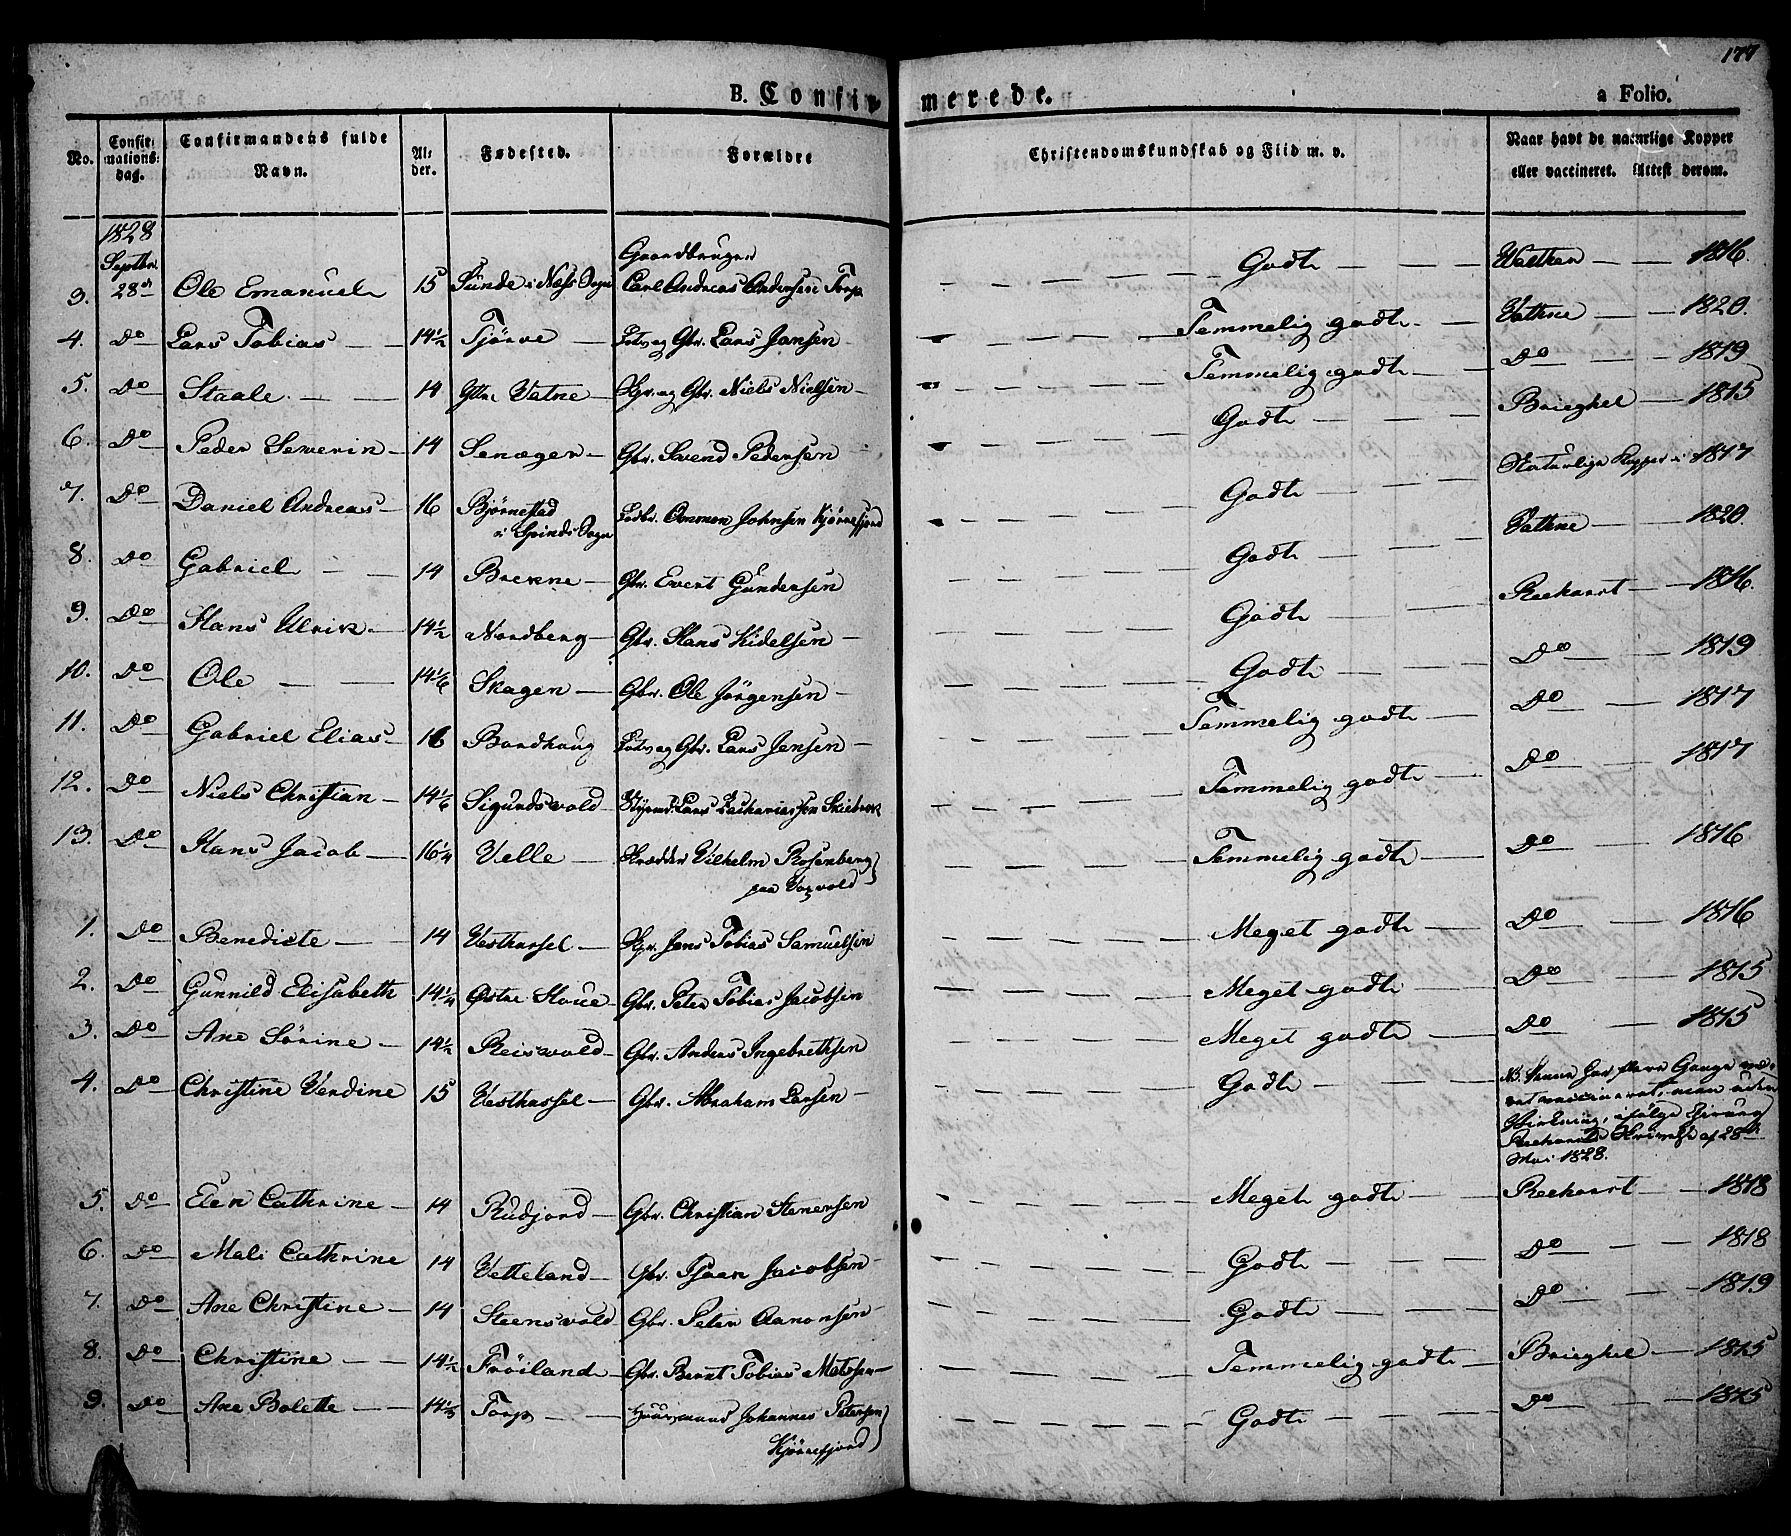 177
B. Confirmerede.
a Folio.
No.
Confirmationsdag.
Confirmandens fulde Navn.
Alder.
Fødested.
Forældre
Christendomskundskab og Flid m. v.
Naar havt de naturlige Kopper eller vaccineret. Attest derom.
1828 Septbr. Gaardbruger
3. 28de Ole Emanuel 15 Sunde i Næss Sogn Carl Andreas Andersen Torp Godt 1816.
4. Do Lars Tobias 14½ Tjørve Lars Jansen Temmelig godt Vathne 1820.
5. Do Staale 14 Yttre Vatne og Gbr. Niels Nielsen Temmelig godt Do 1819
6. Do Peder Severin 14 Senæger Gbr. Svend Pedersen Godt Brieghel 1815
7. Do Daniel Andreas 16 Bjørnestad i Spinds Sogn Ommon Johnsen Kjørrefjord Godt Naturlige Kopper i 1817
8. Do Gabriel 14 Brekne Gbr. Evert Gundersen Godt Vathne 1820.
9. Do Hans Ulrik 14½ Nordberg Gbr. Hans Kidelsen Godt Reehorst 1816.
10. Do Ole 14 1/6 Skagen Gbr. Ole Jörgensen Godt Do 1819
11. Do Gabriel Elias 16 Bordhaug Gbr. Lars Jensen Temmelig godt Do 1817
12. Do Niels Christian 14 1/6 Sigundsvold Lars Zachariassen Skiebrok Temmelig godt Do 1817
13. Do Hans Jacob 16¼ Velle Skrædder Vilhelm Rosenberg paa Vogvold Temmelig godt Do 1816
1. Do Benedicte 14 Vesthassel Jens Tobias Samuelsen Meget godt Do 1816
2. Do Gunnild Elisabeth 14¼ Østre Houe Gbr. Peter Tobias Jacobsen Meget godt Do 1815
3. Do Ane Sörine 14½ Reisvold Gbr. Anders Ingebrethsen Meget godt Do 1815
4. Do Christine Verdine 15 Vesthassel Gbr. Abraham Larsen Godt NB. Denne har flere Gange været vaccineret, men uden Virkning, ifølge Chirurg Reehorsts Skrivelse af 28de Mai 1828.
5. Do Elen Cathrine 14 Rudjord Gbr. Christian Stenersen Meget godt Reehorst 1818
6. Do Mali Cathrine 14 Vetteland Gbr. Isaac Jacobsen Godt Do 1818
7. Do Ane Christine 14 Steensvold Gbr. Peter Aanonsen Godt Do 1819
8. Do Christine 14½ Fröiland Gbr. Bernt Tobias Matssen Temmelig godt Brieghel 1815
9. Do Ane Bolette 14⅓ Torp Huusmand Johannes Petersen Kjørrefjord Godt Do 1815